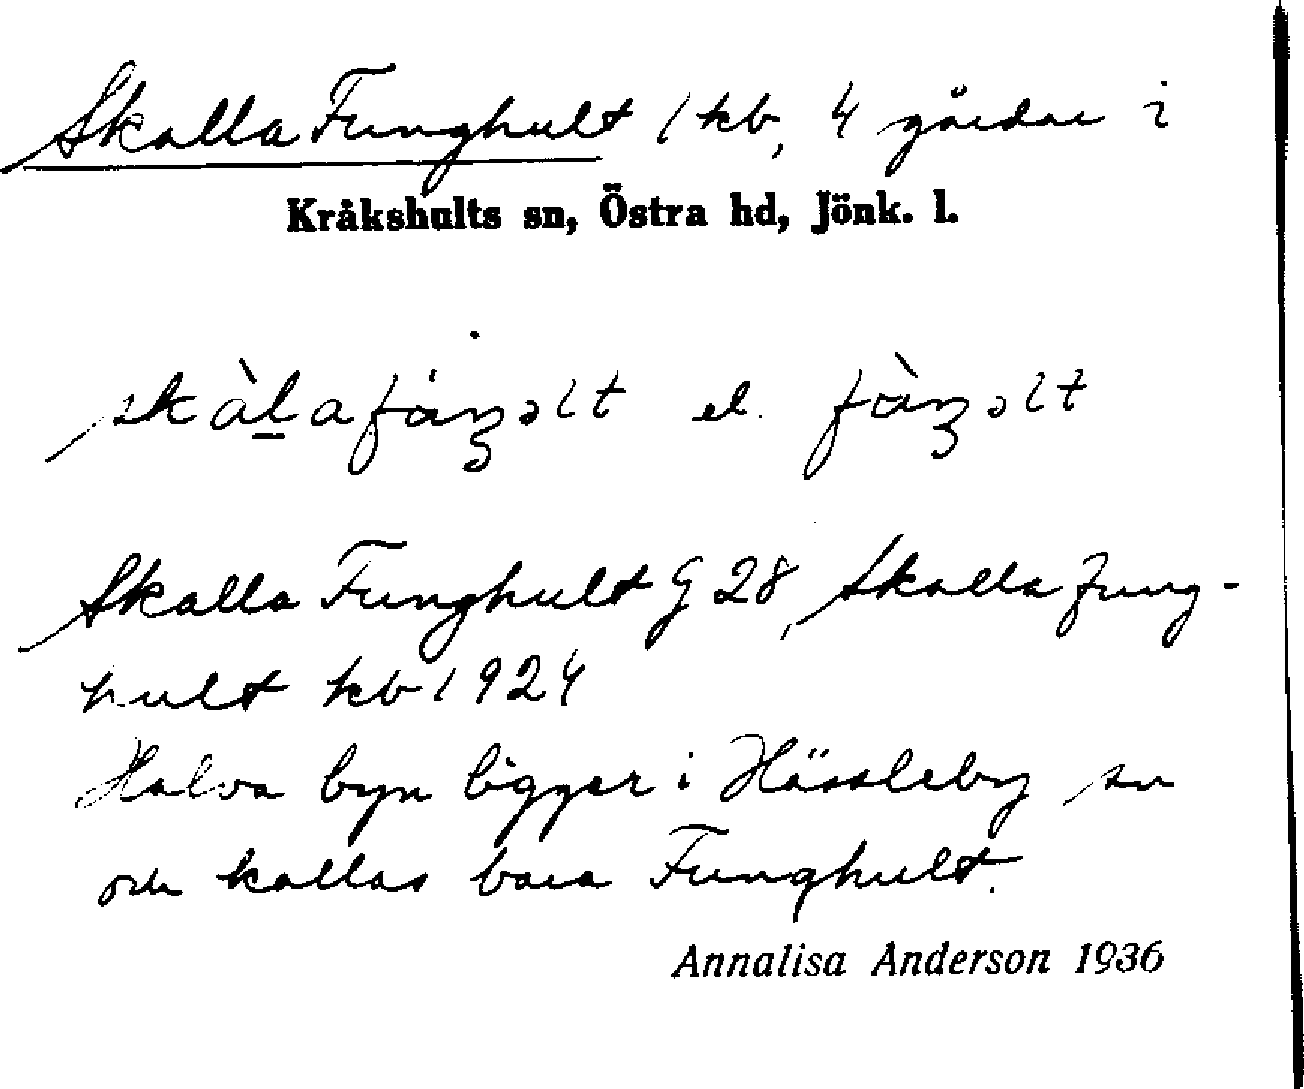 Skalla Funghult / kb, 4 gårdar i
Kråkshults sn, Östra hd, Jönk. l.
el.
Skalla Funghult G 28, Skalla Fung-
hult kb 1924
Halva byn ligger i Hässleby sn
och kallas bara Funghult.
Annalisa Anderson 1936